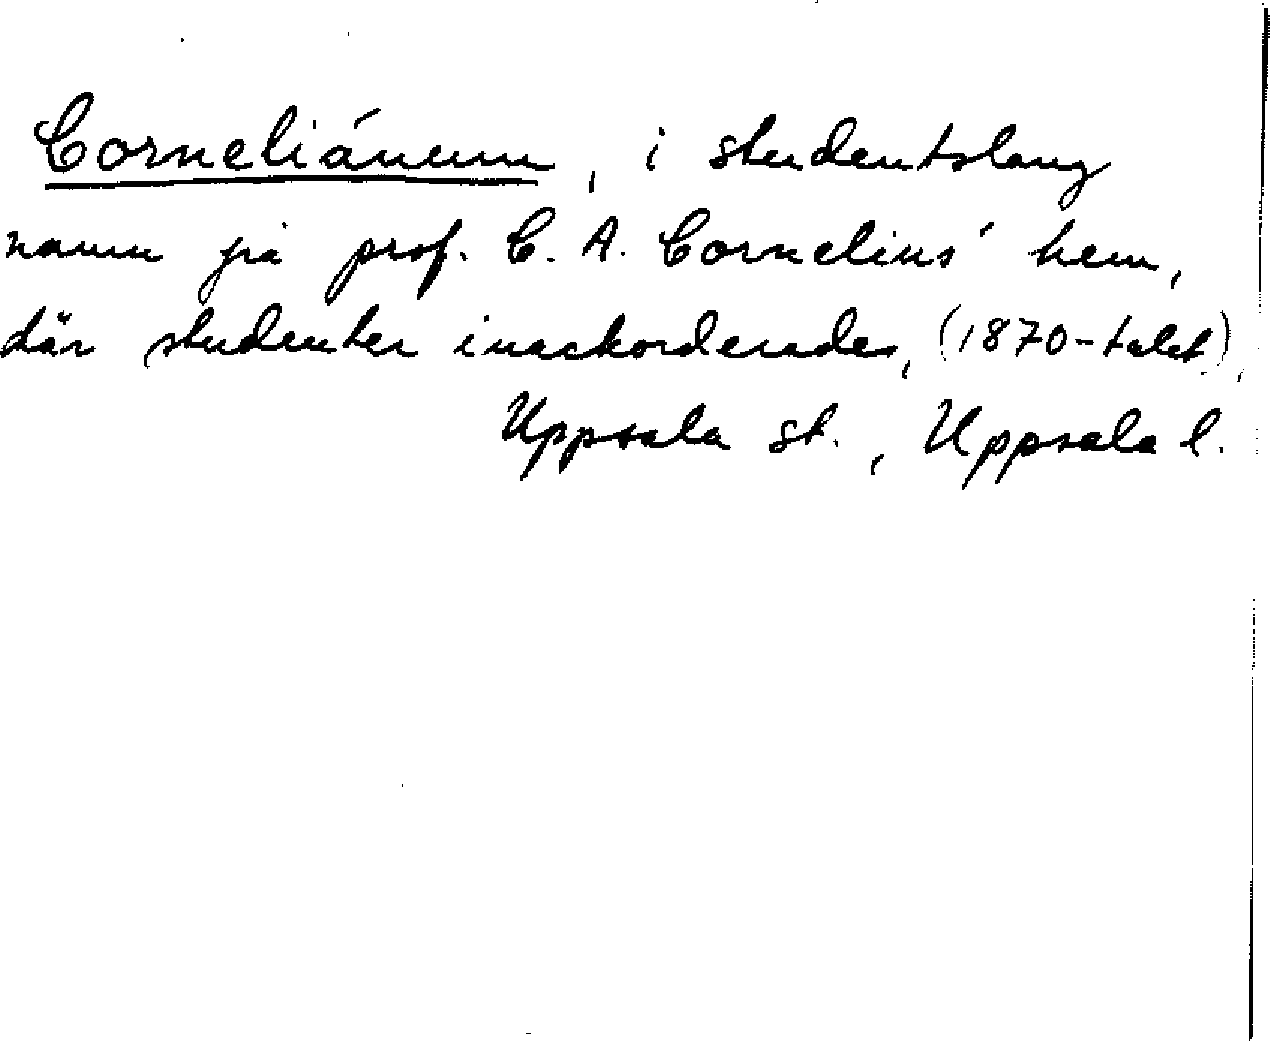 Corneliánum, i studentslang
namn på prof. C. A. Cornelius' hem,
där studenter inackorderades, (1870-talet),
Uppsala st., Uppsala l.